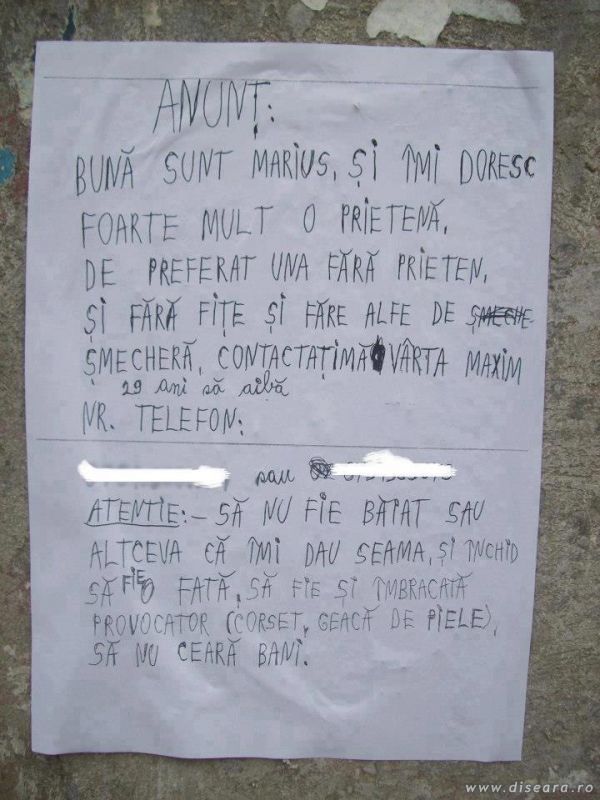 ANUNȚ:
BUNĂ SUNT MARIUS, ȘI ÎMI DORESC
FOARTE MULT O PRIETENĂ,
DE PREFERAT UNA FĂRĂ PRIETEN,
ȘI FĂRĂ FIȚE ȘI FĂRE ALFE DE ȘMECHE-
ȘMECHERĂ, CONTACTAȚIMĂ VÂRTA MAXIM
29 ani să aibă
NR. TELEFON:
sau
ATENTIE:- SĂ NU FIE BĂIAT SAU
ALTCEVA CĂ ÎMI DAU SEAMA, ȘI ÎNCHID
SĂ FIE O FATĂ, SĂ FIE ȘI ÎMBRACATĂ
PROVOCATOR (CORSET, GEACĂ DE PIELE),
SĂ NU CEARĂ BANI.
www.diseara.ro